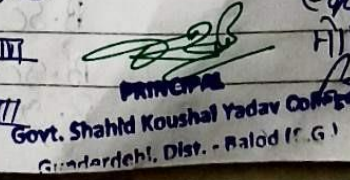 III
मो
PRINCIPAL
Govt. Shahid Koushal Yadav College
Gunderdehi, Dist. - Balod (C.G.)